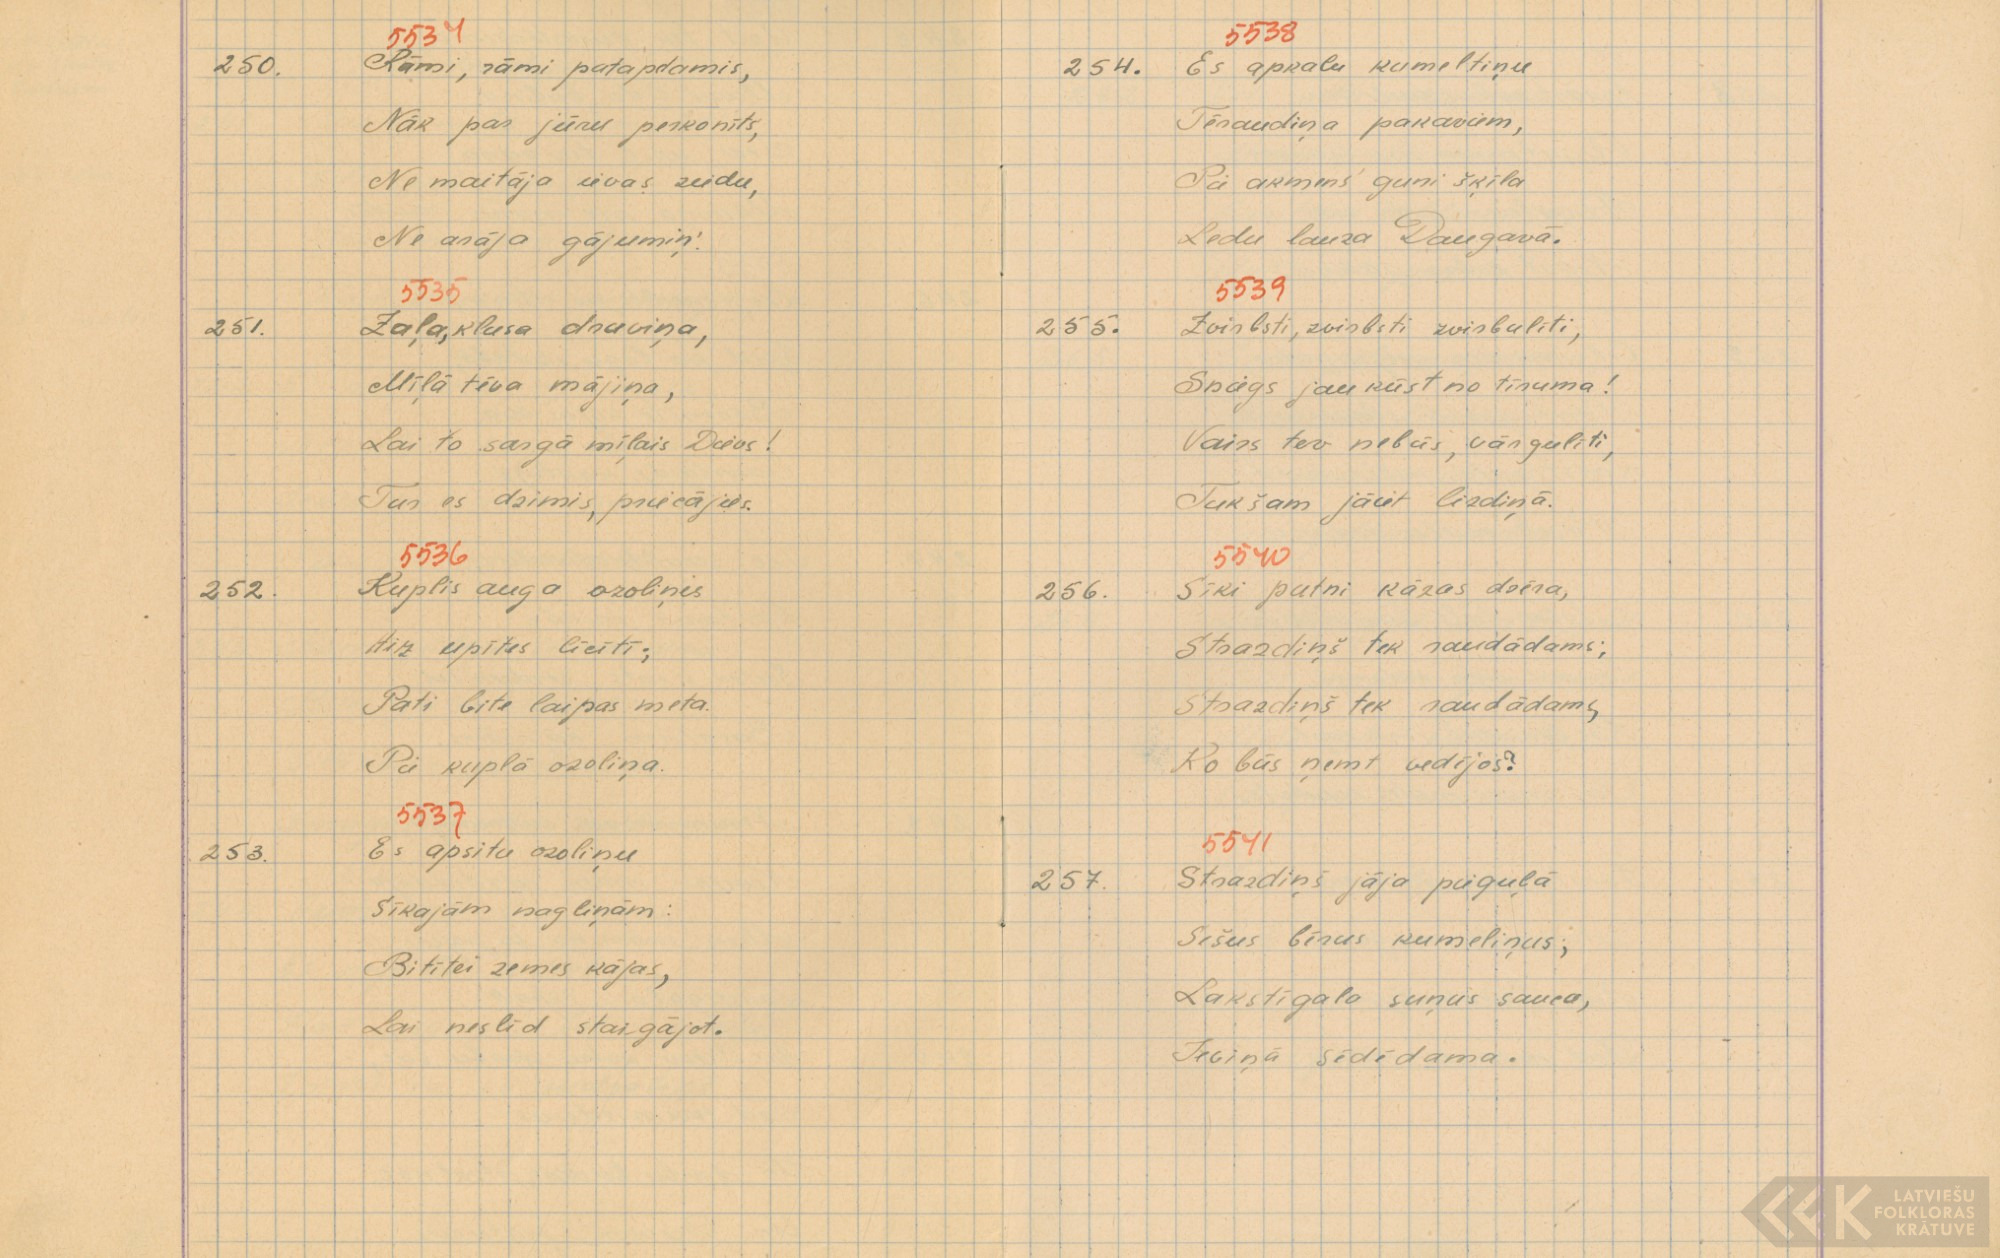 5534
250. Rāmi, rāmi patapdamis,
Nāk par jūru perkonīts,
Ne maitāja ievas ziedu,
Ne arāja gājumiņ'.
5535
251. Zaļa, klusa druviņa,
Mīļā tēva mājiņa,
Lai to sargā mīļais Dievs!
Tur es dzimis, priecājies.
5536
252. Kuplis auga ozoliņis
Aiz upītes līcītī;
Pati bite laipas meta
Pie kuplā ozoliņa.
5537
253. Es apsitu ozoliņu
Sīkajām nagliņām:
Bitītei zemes kājas,
Lai neslīd staigājot.
5538
254. Es apkalu kumeltiņu
Tēraudiņa pakaviem,
Pie akmens' guni šķīla
Ledu lauza Daugavā.
5539
255. Zvirbsti, zvirbsti zvirbulīti,
Sniegs jau kūst no tīruma!
Vairs tev nebūs, vārgulīti,
Tukšam jāiet lizdiņā.
5540
256. Sīki putni kāzas dzēra,
Strazdiņš tek raudādams;
Strazdiņš tek raudādams,
Ko būs ņemt vedējos?
5541
257. Strazdiņš jāja pieguļā
Sešus bērus kumeliņus;
Lakstīgala suņus sauca,
Ieviņā sēdēdama.
LATVIEŠU
FOLKLORAS
KRĀTUVE